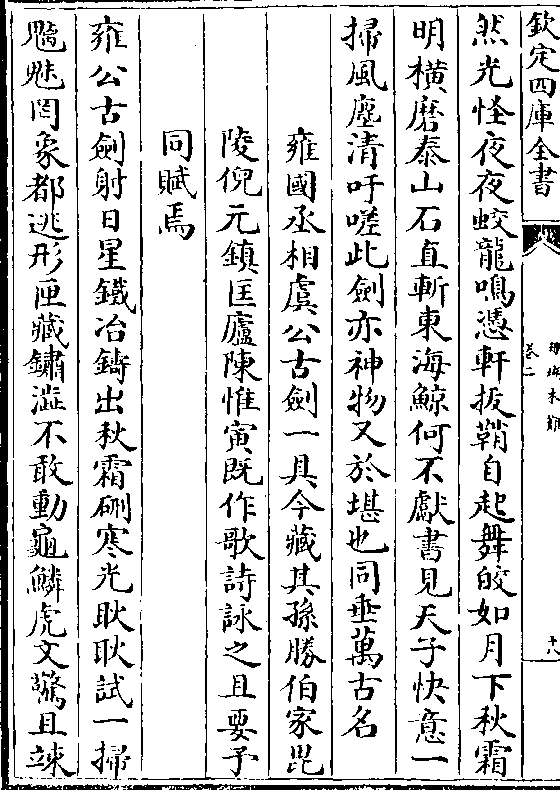 欽定四庫全書
卷二
十八
然光怪夜夜蛟龍鳴憑軒拔鞘自起舞皎如月下秋霜
明橫磨泰山石直斬東海鯨何不獻書見天子快意一
掃風塵清吁嗟此劍亦神物又於堪也同垂萬古名
雍國丞相虞公古劍一具今藏其孫勝伯家毘
陵倪元鎮匡廬陳惟寅既作歌詩詠之且要予
同賦焉
雍公古劍射日星鐵冶鑄出秋霜硎寒光耿耿試一掃
魑魅罔象都逃形匣藏鏽澁不敢動龜鱗虎文驚且竦